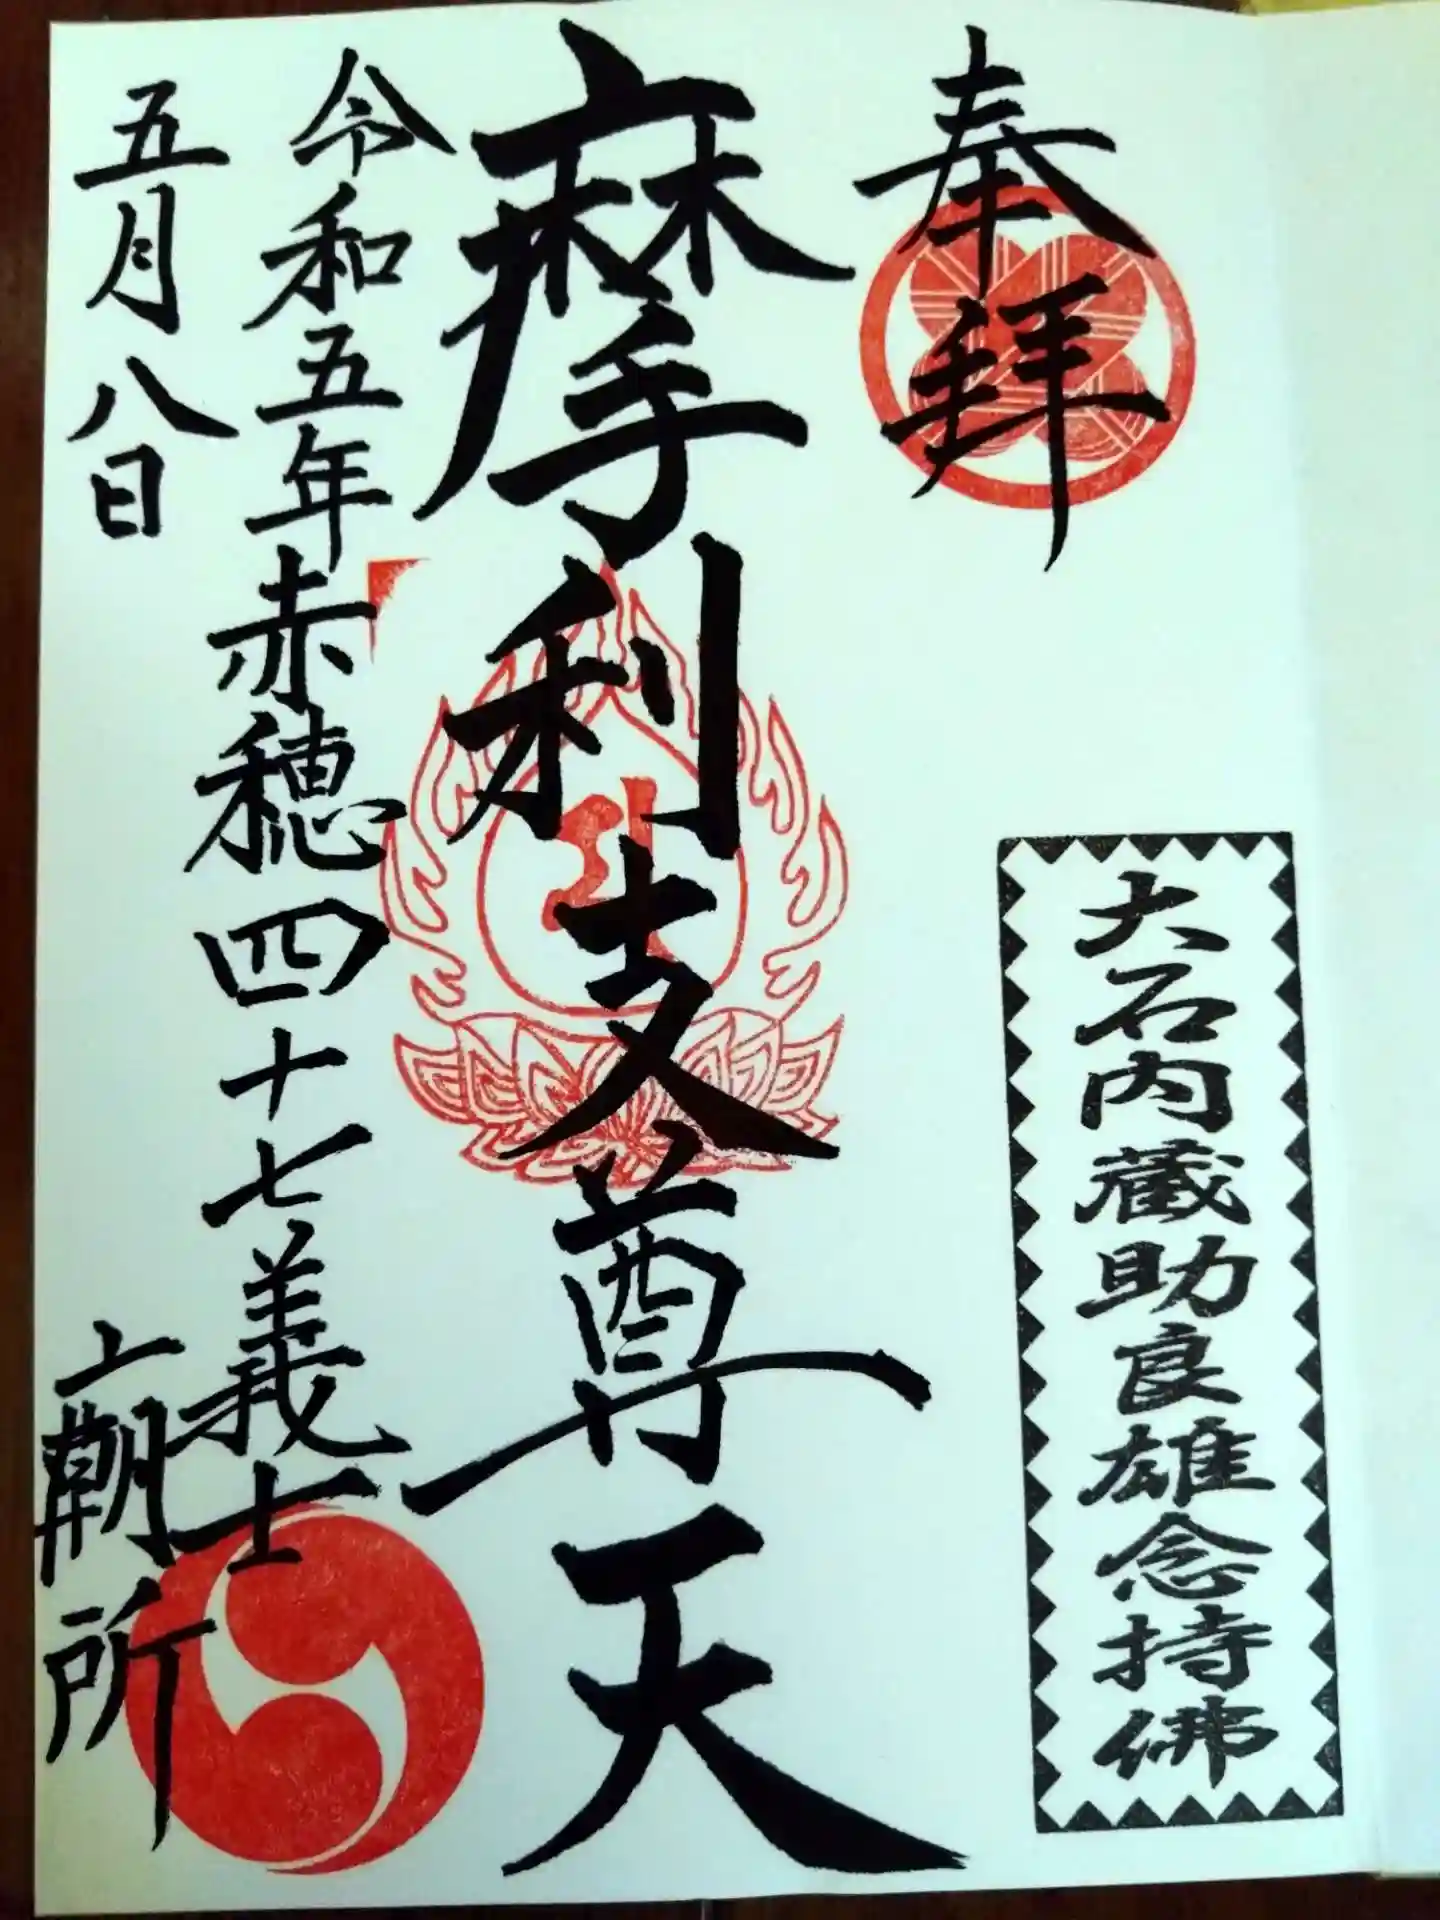 奉拝
大石内蔵助良雄念持佛
摩利支尊天
令和五年赤穂四十七義士
五月八日
上朝所